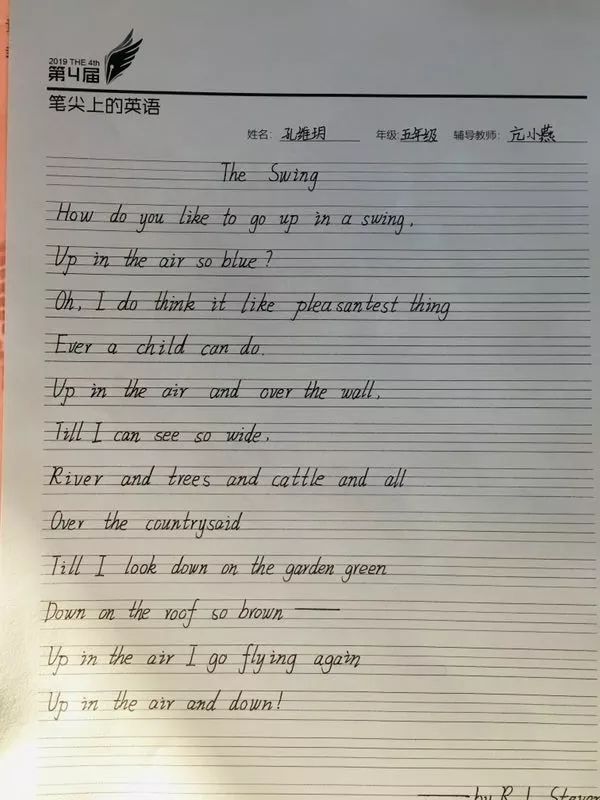 2019 THE 4th
第4届
笔尖上的英语
姓名: 孔雅玥 年级: 五年级 辅导教师: 亢小燕
The Swing
How do you like to go up in a swing,
Up in the air so blue?
Oh, I do think it like pleasantest thing
Ever a child can do.
Up in the air and over the wall,
Till I can see so wide,
River and trees and cattle and all
Over the countrysaid
Till I look down on the garden green
Down on the roof so brown——
Up in the air I go flying again
Up in the air and down!
——by R. L. Steven